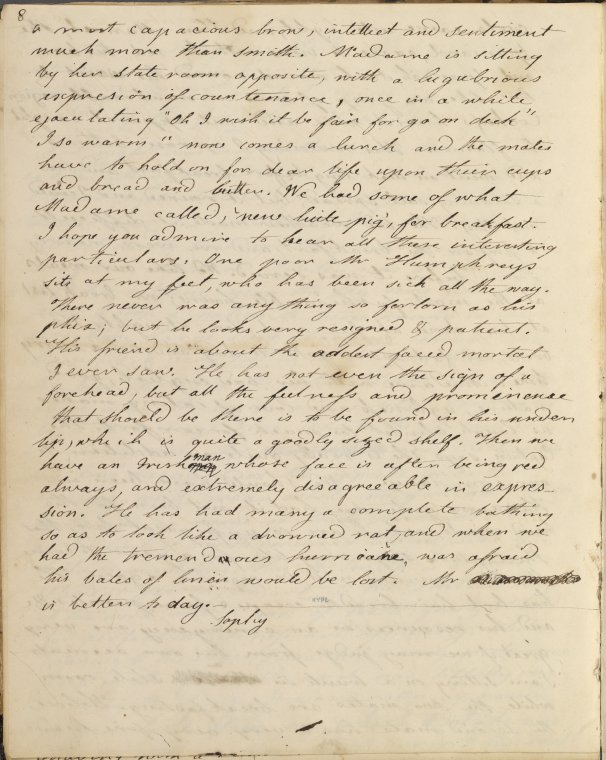 8
a most capacious brow, intellect and sentiment
much more than smith. Madame is sitting
by her state room opposite, with a lugubrious
expresion of countenance, once in a while
ejeculating "Oh I wish it be fair for go on deck"
I so warm" none comes a lurch and the mates
have to hold on for dear life upon their cups
and bread and butter. We had some of what
Madame called, "neve luite pig", for breakfast.
I hope you admire to hear all these interesting
particulars. One poor Mr Humphreys
sits at my feet, who has been sick all the way.
There never was any thing so forlorn as his
phiz; but he looks very resigned & patient.
His friend is about the oddest faced mortal
I ever saw. He has not even the sign of a
forehead, but all the fulness and prominence
that should be there is to be found in his under
lip, which is quite a goodly sized shelf. Then we
have an Irishman whose face is after being red
always, and extremely disagreeable in expres-
sion. He has had many a complete bathing
so as to look like a drowned rat, and when we
had the tremendous hurricane, was afraid
his bales of linen would be lost. Mr
is better to day.
Sophy
NYPL